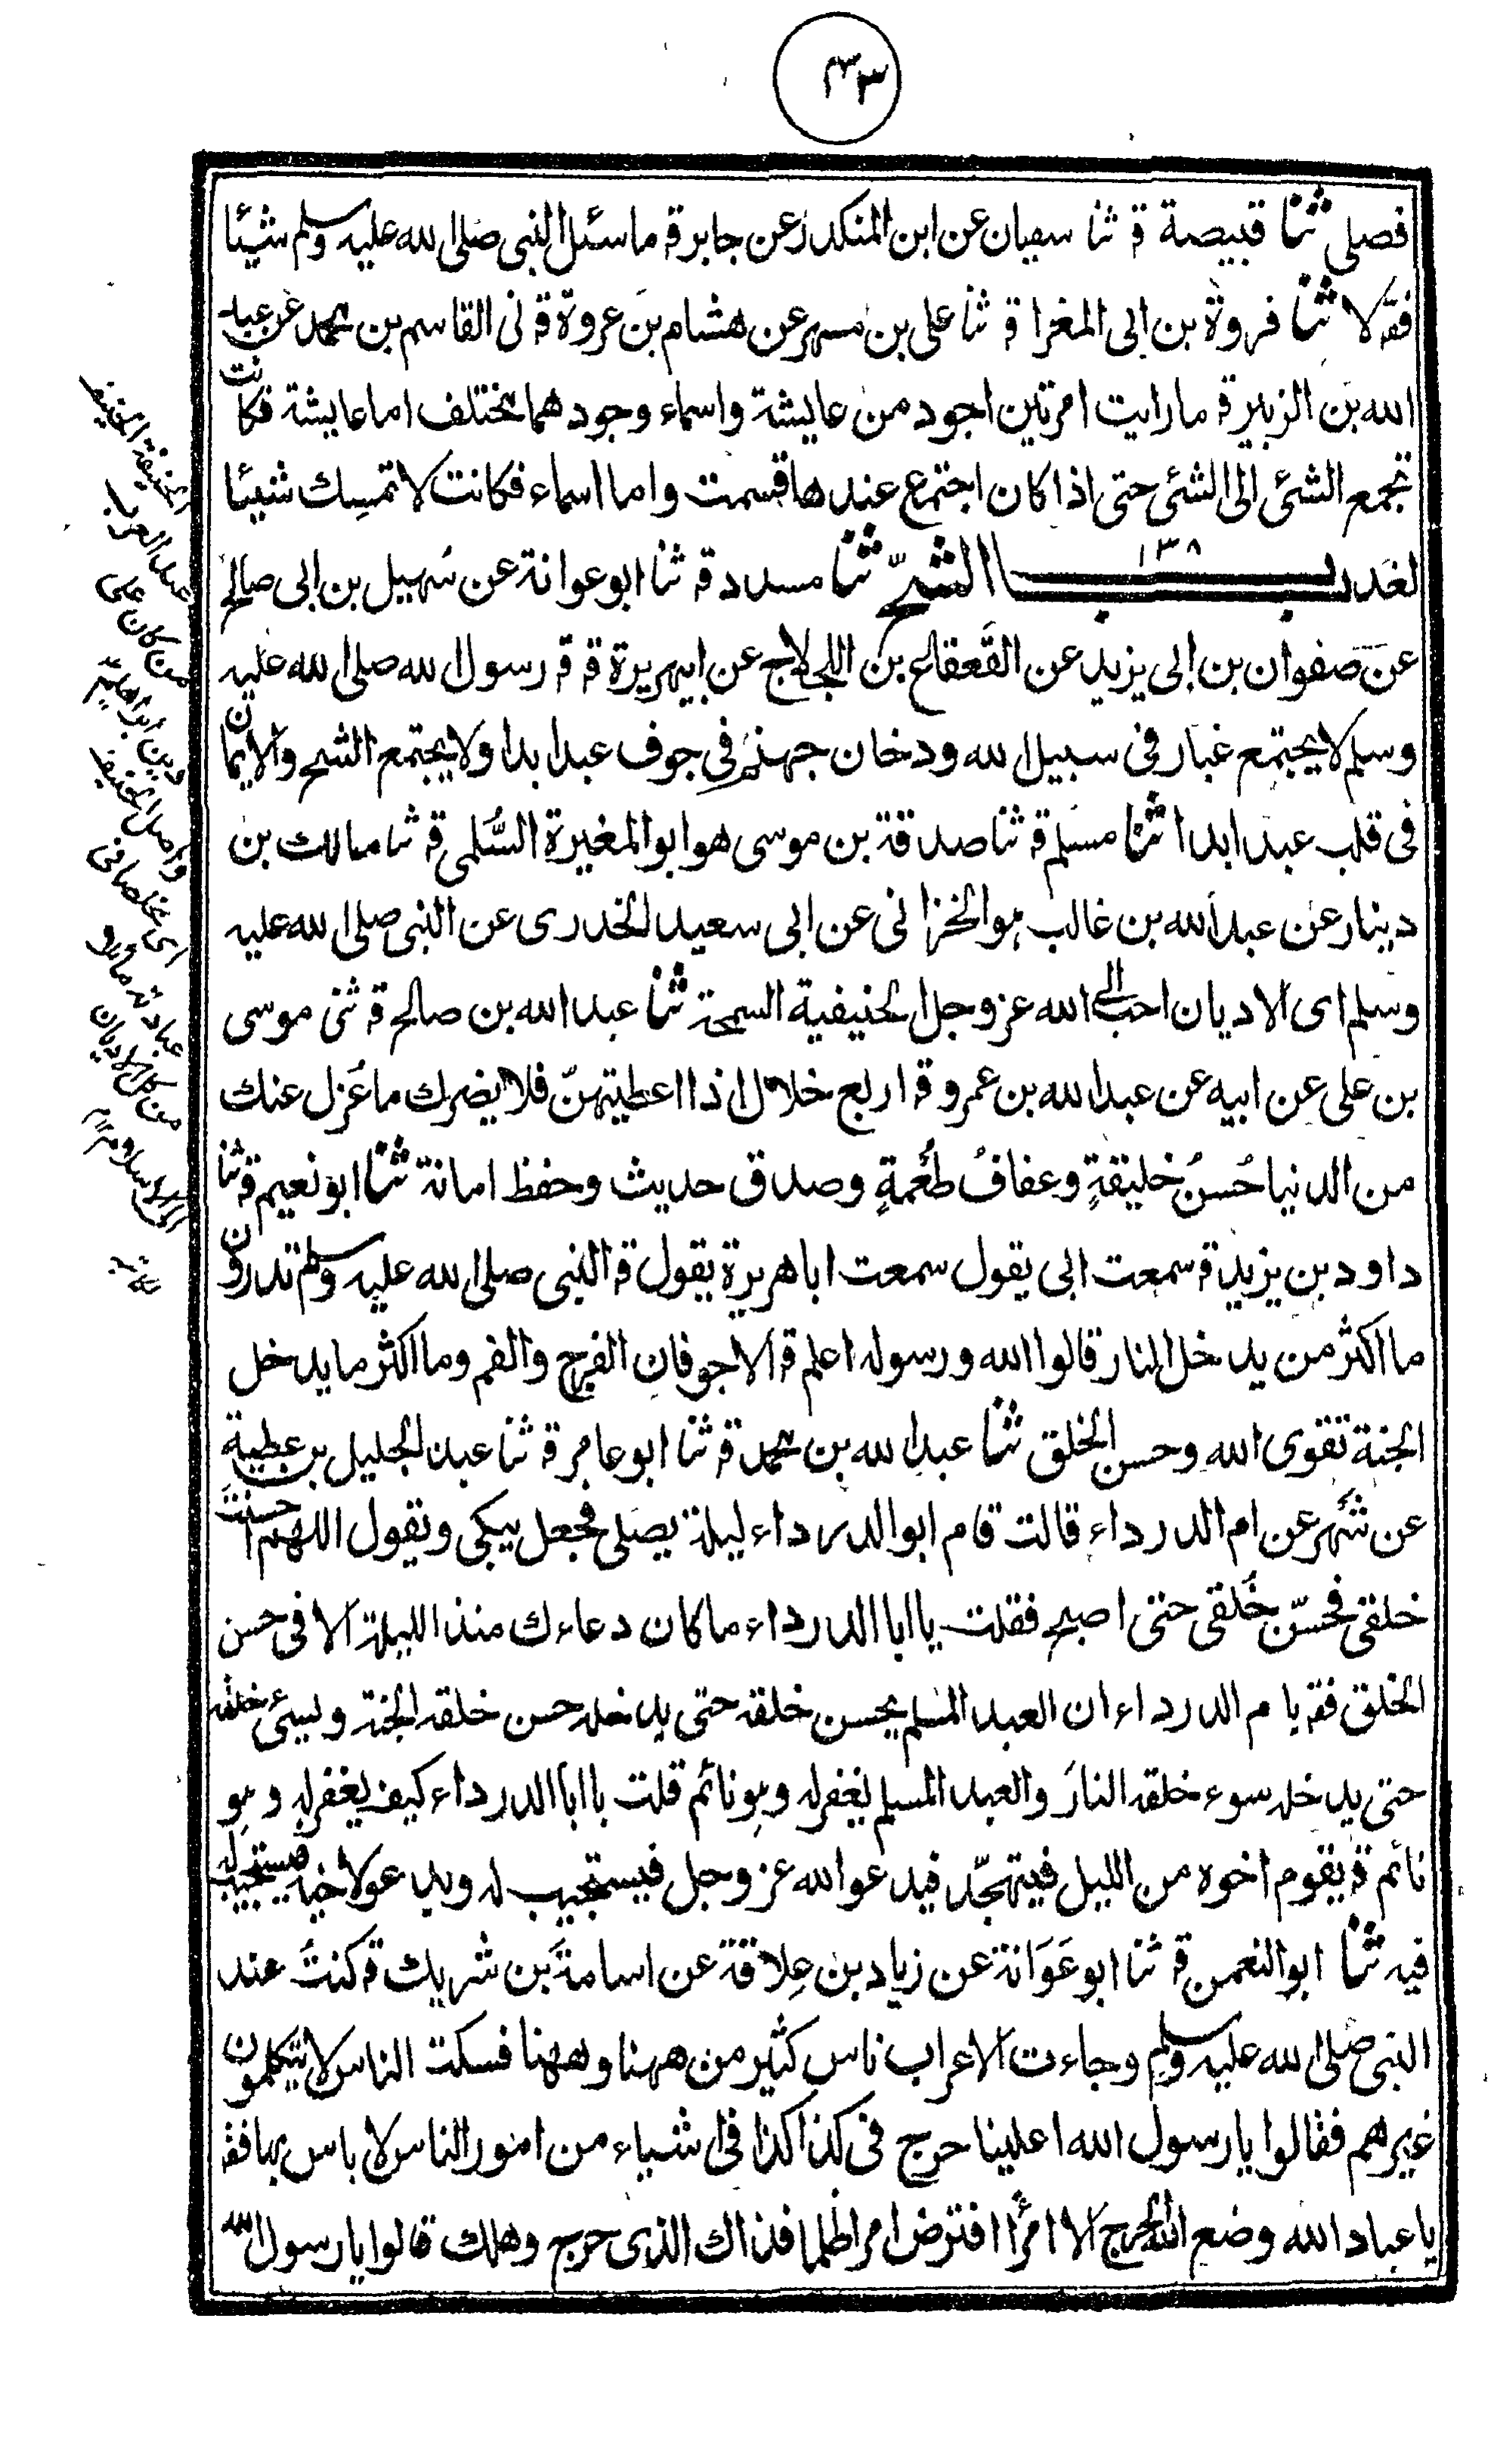 ٤٣
فصلى ثنا قبيصة قـ ثنا سفيان عن ابن المنكدر عن جابر قـ ما سئل النبى صلى الله عليه وسلم شيئا
فقـ لا ثنا فروة بن ابى المغرا قـ ثنا على بن مسهر عن هشام بن عروة قـ نى القاسم بن محمد عن عبد
الله بن الزبير قـ ما رايت امرتين اجود من عايشة واسماء وجودهما يختلف اما عايشة فكانت
تجمع الشئى الى الشئى حتى اذا كان اجتمع عندها قسمت واما اسماء فكانت لا تمسك شيئا
لغد باب ١٣٨ الشحّ ثنا مسدد قـ ثنا ابو عوانة عن سُهيل بن ابى صالح
عن صفوان بن ابى يزيد عن القَعقاع بن اللجلاج عن ابيهريرة قـ قـ رسول الله صلى الله عليه
وسلم لا يجتمع غبار فى سبيل الله ودخان جهنم فى جوف عبد ابدا ولا يجتمع الشح والايمان
فى قلب عبد ابدا ثنا مسلم قـ ثنا صدقة بن موسى هو ابو المغيرة السُّلمى قـ ثنا مالك بن
دينار عن عبد الله بن غالب هو الخزانى عن ابى سعيد الخدرى عن النبى صلى الله عليه
وسلم اى الاديان احب الى الله عز وجل الحنيفية السمحة ثنا عبد الله بن صالح قـ ثنى موسى
بن على عن ابيه عن عبد الله بن عمرو قـ اربع خلال اذا اعطيتهنّ فلا يضرك ما عُزل عنك
من الدنيا حُسنُ خليقةٍ وعفافُ طُعُمةٍ وصدق حديث وحفظ امانة ثنا ابو نعيم قـ ثنا
داود بن يزيد قـ سمعت ابى يقول سمعت ابا هريرة يقول قـ النبى صلى الله عليه وسلم تدرون
ما اكثر من يدخل النار قالوا الله ورسوله اعلم قـ الاجوفان الفرج والفم وما اكثر ما يدخل
الجنة تقوى الله وحسن الخلق ثنا عبد الله بن محمد قـ ثنا ابو عامر قـ ثنا عبد الجليل بن عطية
عن شَهر عن ام الدرداء قالت قام ابو الدرداء ليلة يصلى فجعل يبكى ويقول اللهم احسنت
خلقى فحسّن خُلقى حتى اصبح فقلت يا ابا الدرداء ما كان دعاءك منذ الليلة الا فى حسن
الخلق فقـ يا م الدرداء ان العبد المسلم يحسن خلقه حتى يدخله حسن خلقه الجنة ويسئ خلقه
حتى يدخله سوء خلقه النار والعبد المسلم يغفر له وهو نائم قلت يا ابا الدرداء كيف يغفر له وهو
نائم قـ يقوم اخوه من الليل فيتهجّد فيدعو الله عز وجل فيستجيب له ويدعو لاخيه فيستجيب له
فيه ثنا ابو النعمن قـ ثنا ابو عَوَانة عن زياد بن عِلاقة عن اسامة بن شريك قـ كنت عند
النبى صلى الله عليه وسلم وجاءت الاعراب ناس كثير من ههنا وههنا فسكت الناس لا يتكلمون
غيرهم فقالوا يا رسول الله اعلينا حرج فى كذا كذا فى اشياء من امور الناس لا باس بها فقـ
يا عباد الله وضع الله الحرج الا امرًا افترض امرا ظلما فذاك الذى حرج وهلك قالوا يا رسول الله
الحنيفة الحنيف
عند العرب
من كان على
دين ابراهيم
واصل الحنيف
اى مخلصا فى
من كل الاديان
الى الاسلام